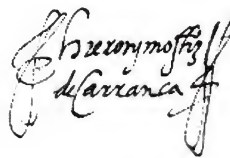 Hieronymo Sz
de Carrança